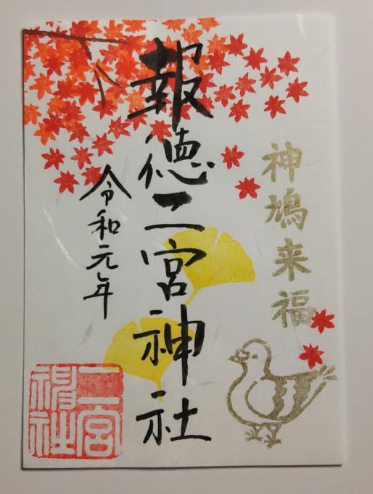 神鳩来福
報徳二宮神社
令和元年
二宮
神社